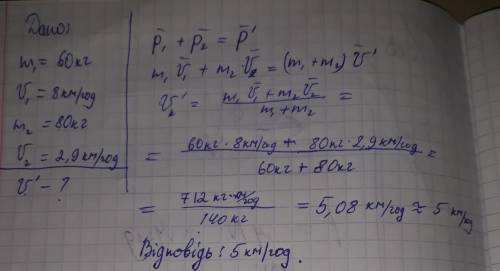 Дано:
m₁ = 60кг
v̄₁ = 8км/год
m₂ = 80кг
v̄₂ = 2,9км/год
v̄' - ?
p̄₁ + p̄₂ = p̄'
m₁ v̄₁ + m₂ · v̄₂ = (m₁ + m₂) v̄'
v̄₂' = (m₁ v̄₁ + m₂ v̄₂)/(m₁ + m₂) =
= (60кг · 8 км/год + 80кг · 2,9 км/год)/(60кг + 80кг) =
= (712 кг · км/год)/(140 кг) = 5,08 км/год ≈ 5 км/год
Відповідь: 5 км/год.